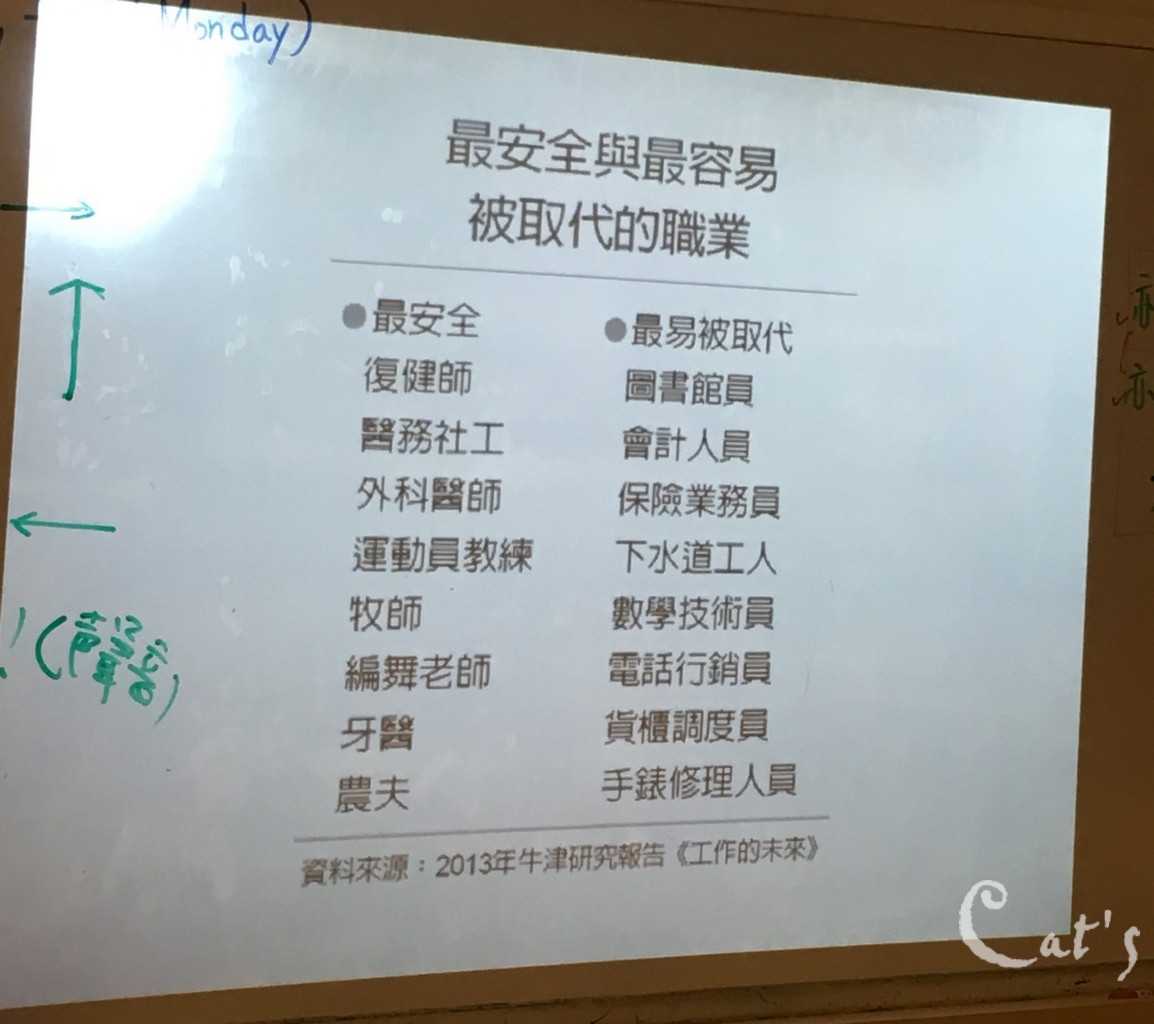 Monday)
最安全與最容易
被取代的職業
●最安全
復健師
醫務社工
外科醫師
運動員教練
牧師
編舞老師
牙醫
農夫
●最易被取代
圖書館員
會計人員
保險業務員
下水道工人
數學技術員
電話行銷員
貨櫃調度員
手錶修理人員
資料來源：2013年牛津研究報告《工作的未來》
(聲音)
Cat's